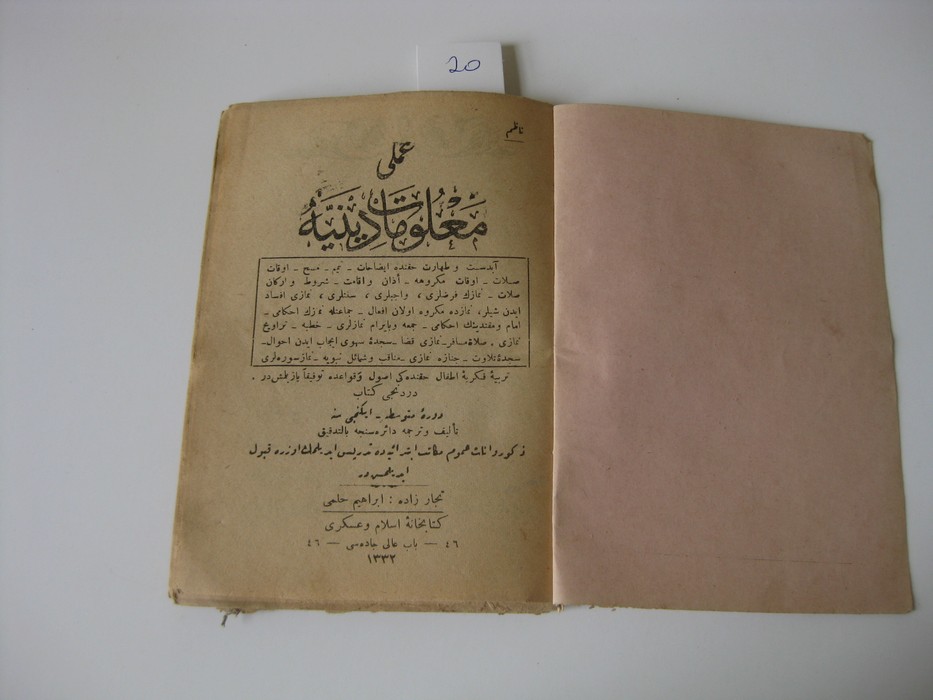 20
ناظم
عملی
مَعْلُومَاتِ دِينِيَّهٔ
آبدست و طهارت حقنده ایضاحات ـ تیمم ـ مسح ـ اوقات
صلات ـ اوقات مکروهه ـ أذان و اقامت ـ شروط و ارکان
صلات ـ نمازك فرضلری ، واجبلری ، سنتلری ، نمازی افساد
ایدن شیلر، نمازده مکروه اولان افعال ـ جماعتله نمازك احکامی ـ
امام ومقتدینك احکامی ـ جمعه وبایرام نمازلری ـ خطبه ـ تراویح
نمازی . صلاة مسافر ـ نمازی قضا ـ سجدهٔ سهوی ایجاب ایدن احوال ـ
سجدهٔ تلاوت ـ جنازه نمازی ـ مناقب وشمائل نبویه ـ نماز سوره‌لری
تربیهٔ فکریهٔ اطفال حقنده‌کی اصول و قواعده توفیقاً یازیلمش در .
دردنجی کتاب
دورهٔ متوسطه ـ ایکنجی سنه
تألیف و ترجمه دائره‌سنجه بالتدقیق
ذکور و اناث عموم مکاتب ابتدائیه‌ده تدریس ایدیلمك اوزره قبول
ایدیلمش در
تجار زاده : ابراهیم حلمی
کتابخانهٔ اسلام و عسکری
٤٦ — باب عالی جاده‌سی — ٤٦
١٣٣٢